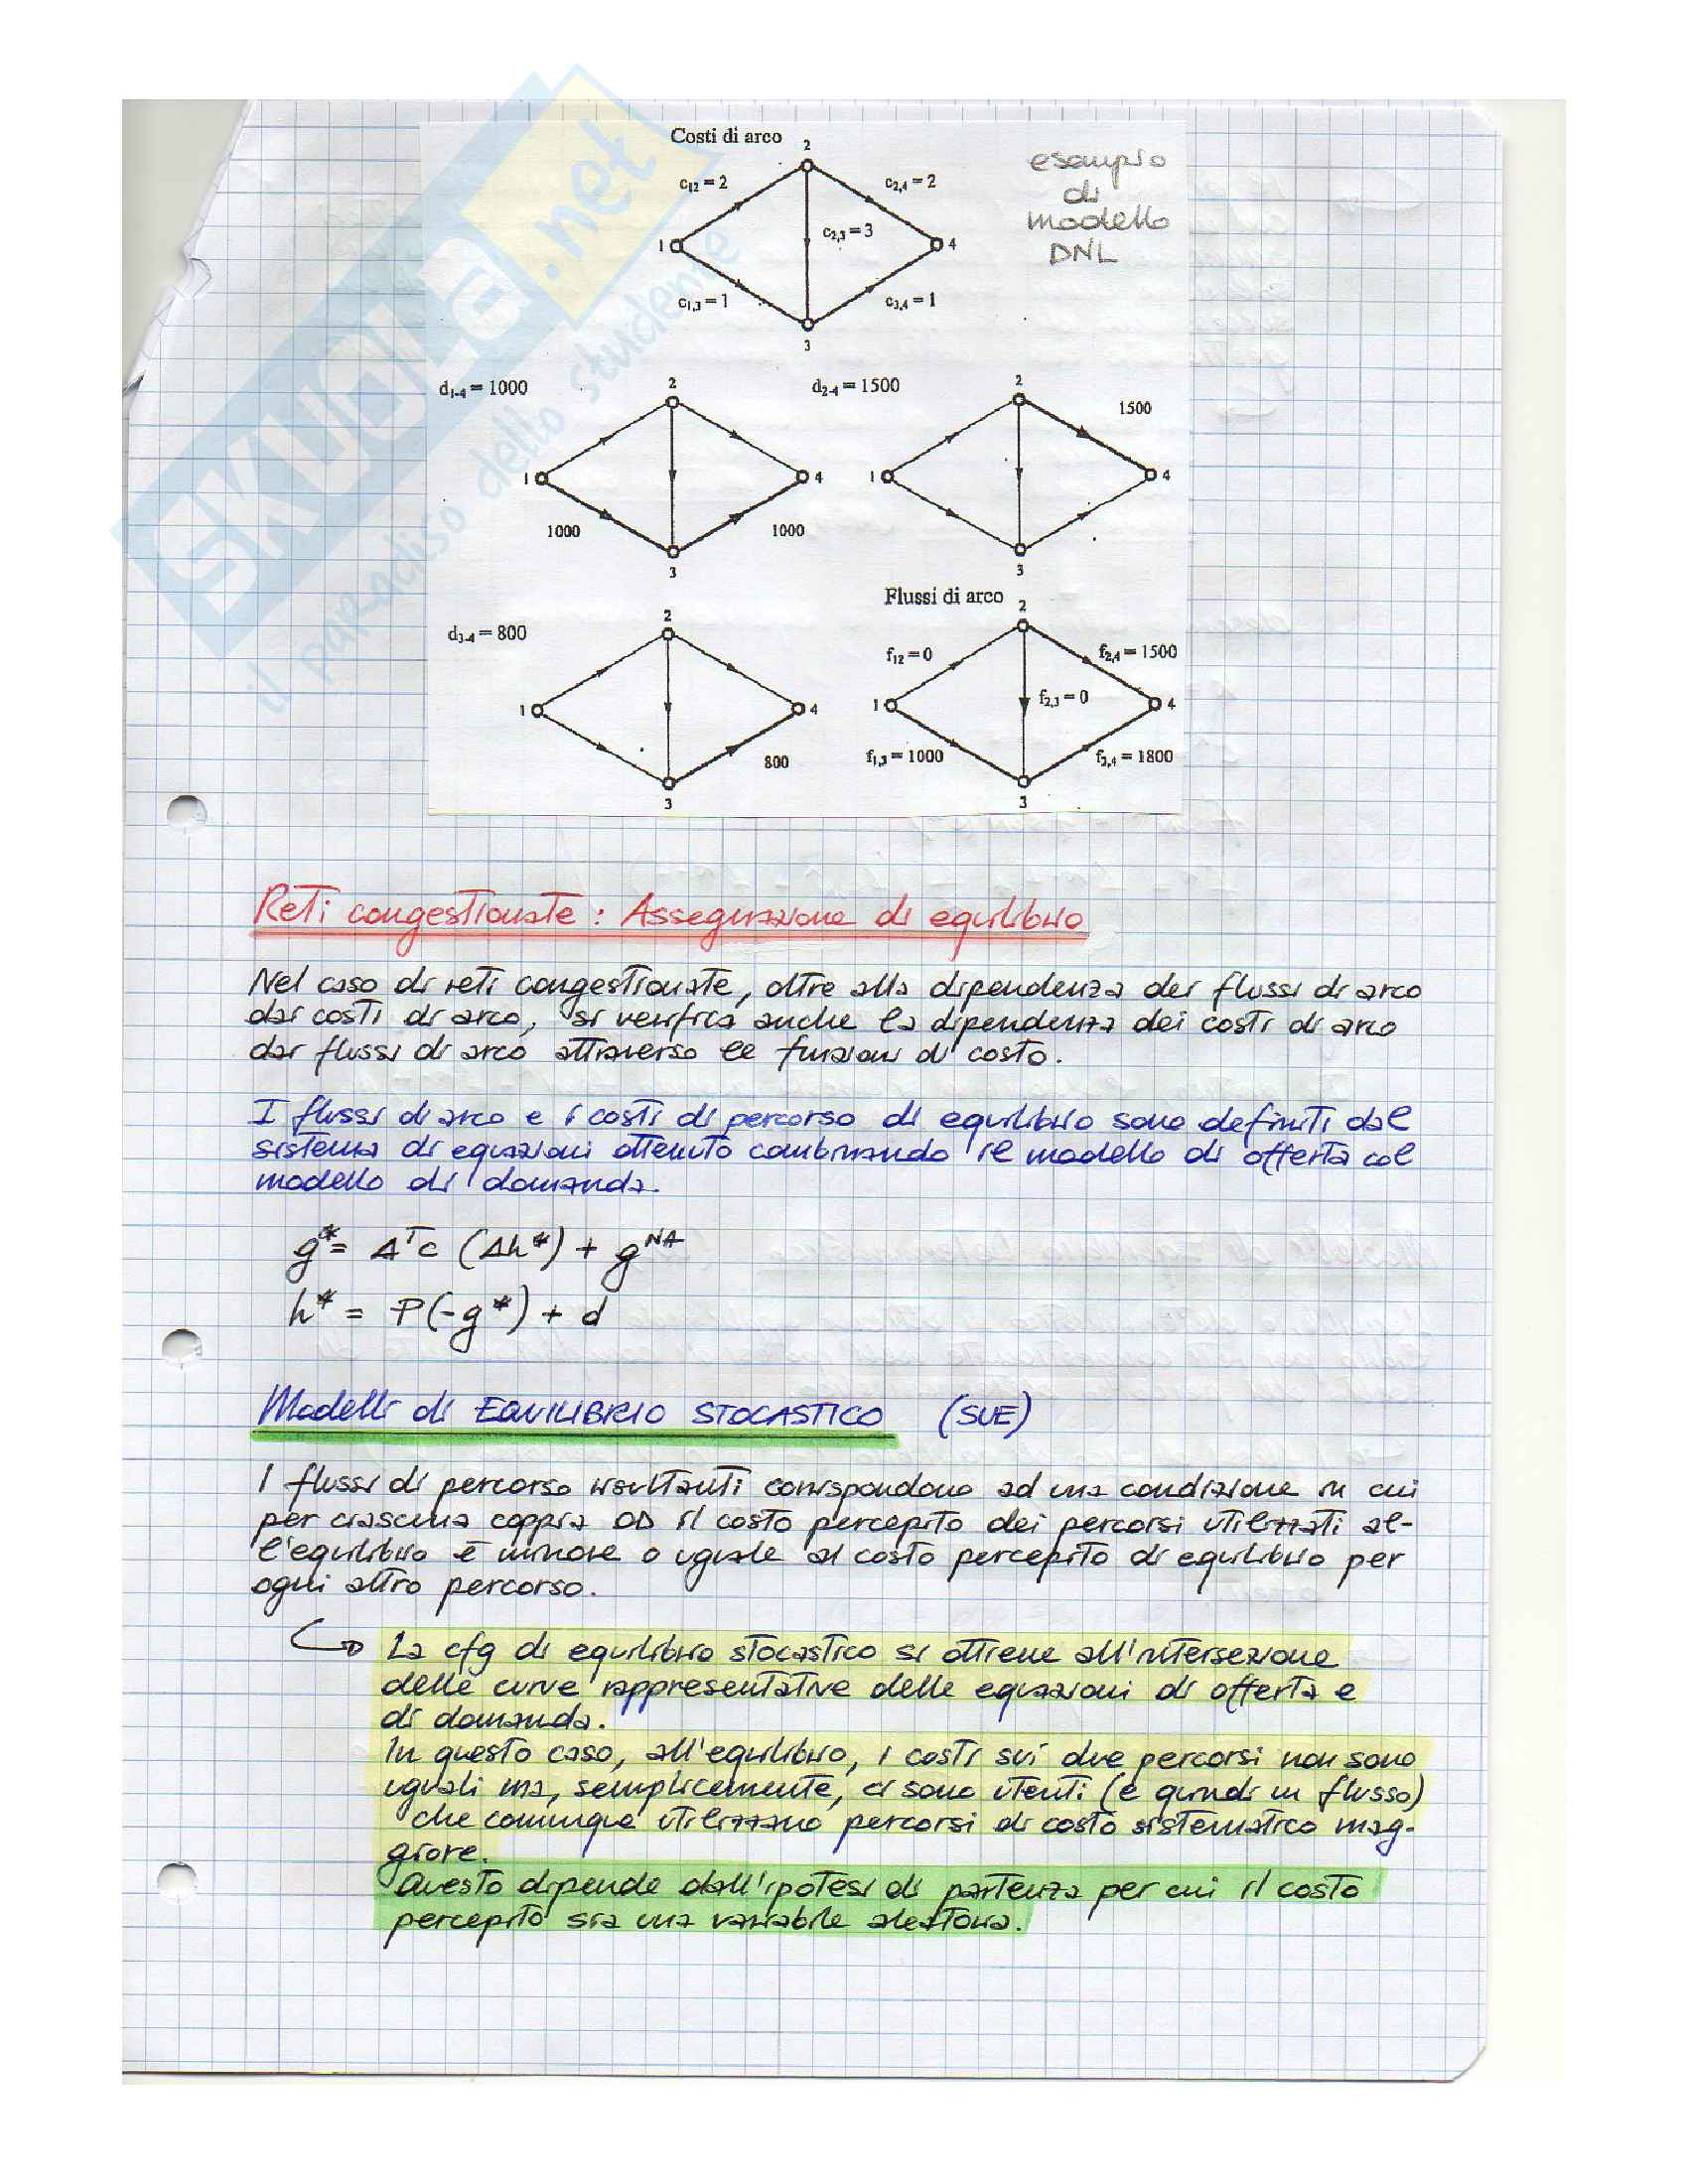 SKUOLA.net
il paradiso dello studente
Costi di arco
esempio
di
modello
DNL
2
c12 = 2
c2,4 = 2
c2,3 = 3
1
4
c1,3 = 1
c3,4 = 1
3
d1-4 = 1000
2
1
4
1000
1000
3
d2-4 = 1500
2
1500
1
4
3
d3-4 = 800
2
1
4
800
3
Flussi di arco
2
f12 = 0
f2,4 = 1500
f2,3 = 0
1
4
f1,3 = 1000
f3,4 = 1800
3
Reti congestionate : Assegnazione di equilibrio
Nel caso di reti congestionate, oltre alla dipendenza dei flussi di arco
dai costi di arco, si verifica anche la dipendenza dei costi di arco
dai flussi di arco attraverso le funzioni di costo.
I flussi di arco e i costi di percorso di equilibrio sono definiti dal
sistema di equazioni ottenuto combinando il modello di offerta col
modello di domanda.
g* = Δᵀc (Δh*) + gᴺᴬ
h* = P(-g*) + d
Modelli di EQUILIBRIO STOCASTICO (SUE)
I flussi di percorso risultanti corrispondono ad una condizione in cui
per ciascuna coppia OD il costo percepito dei percorsi utilizzati al-
l'equilibrio è minore o uguale al costo percepito di equilibrio per
ogni altro percorso.
La cfg di equilibrio stocastico si ottiene all'intersezione
delle curve rappresentative delle equazioni di offerta e
di domanda.
In questo caso, all'equilibrio, i costi sui due percorsi non sono
uguali ma, semplicemente, ci sono utenti (e quindi un flusso)
che comunque utilizzano percorsi di costo sistematico mag-
giore.
Questo dipende dall'ipotesi di partenza per cui il costo
percepito sia una variabile aleatoria.